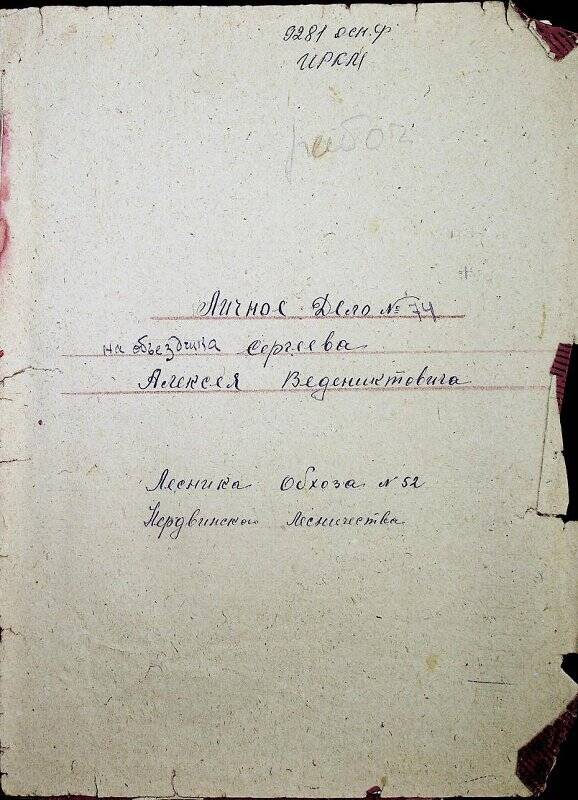 9281 осн.ф
ИРКМ
рабоч
Личное Дело № 74
на объездчика Сергеева
Алексея Ведениктовича
Лесника Обхоза № 52
Нердвинского Лесничества